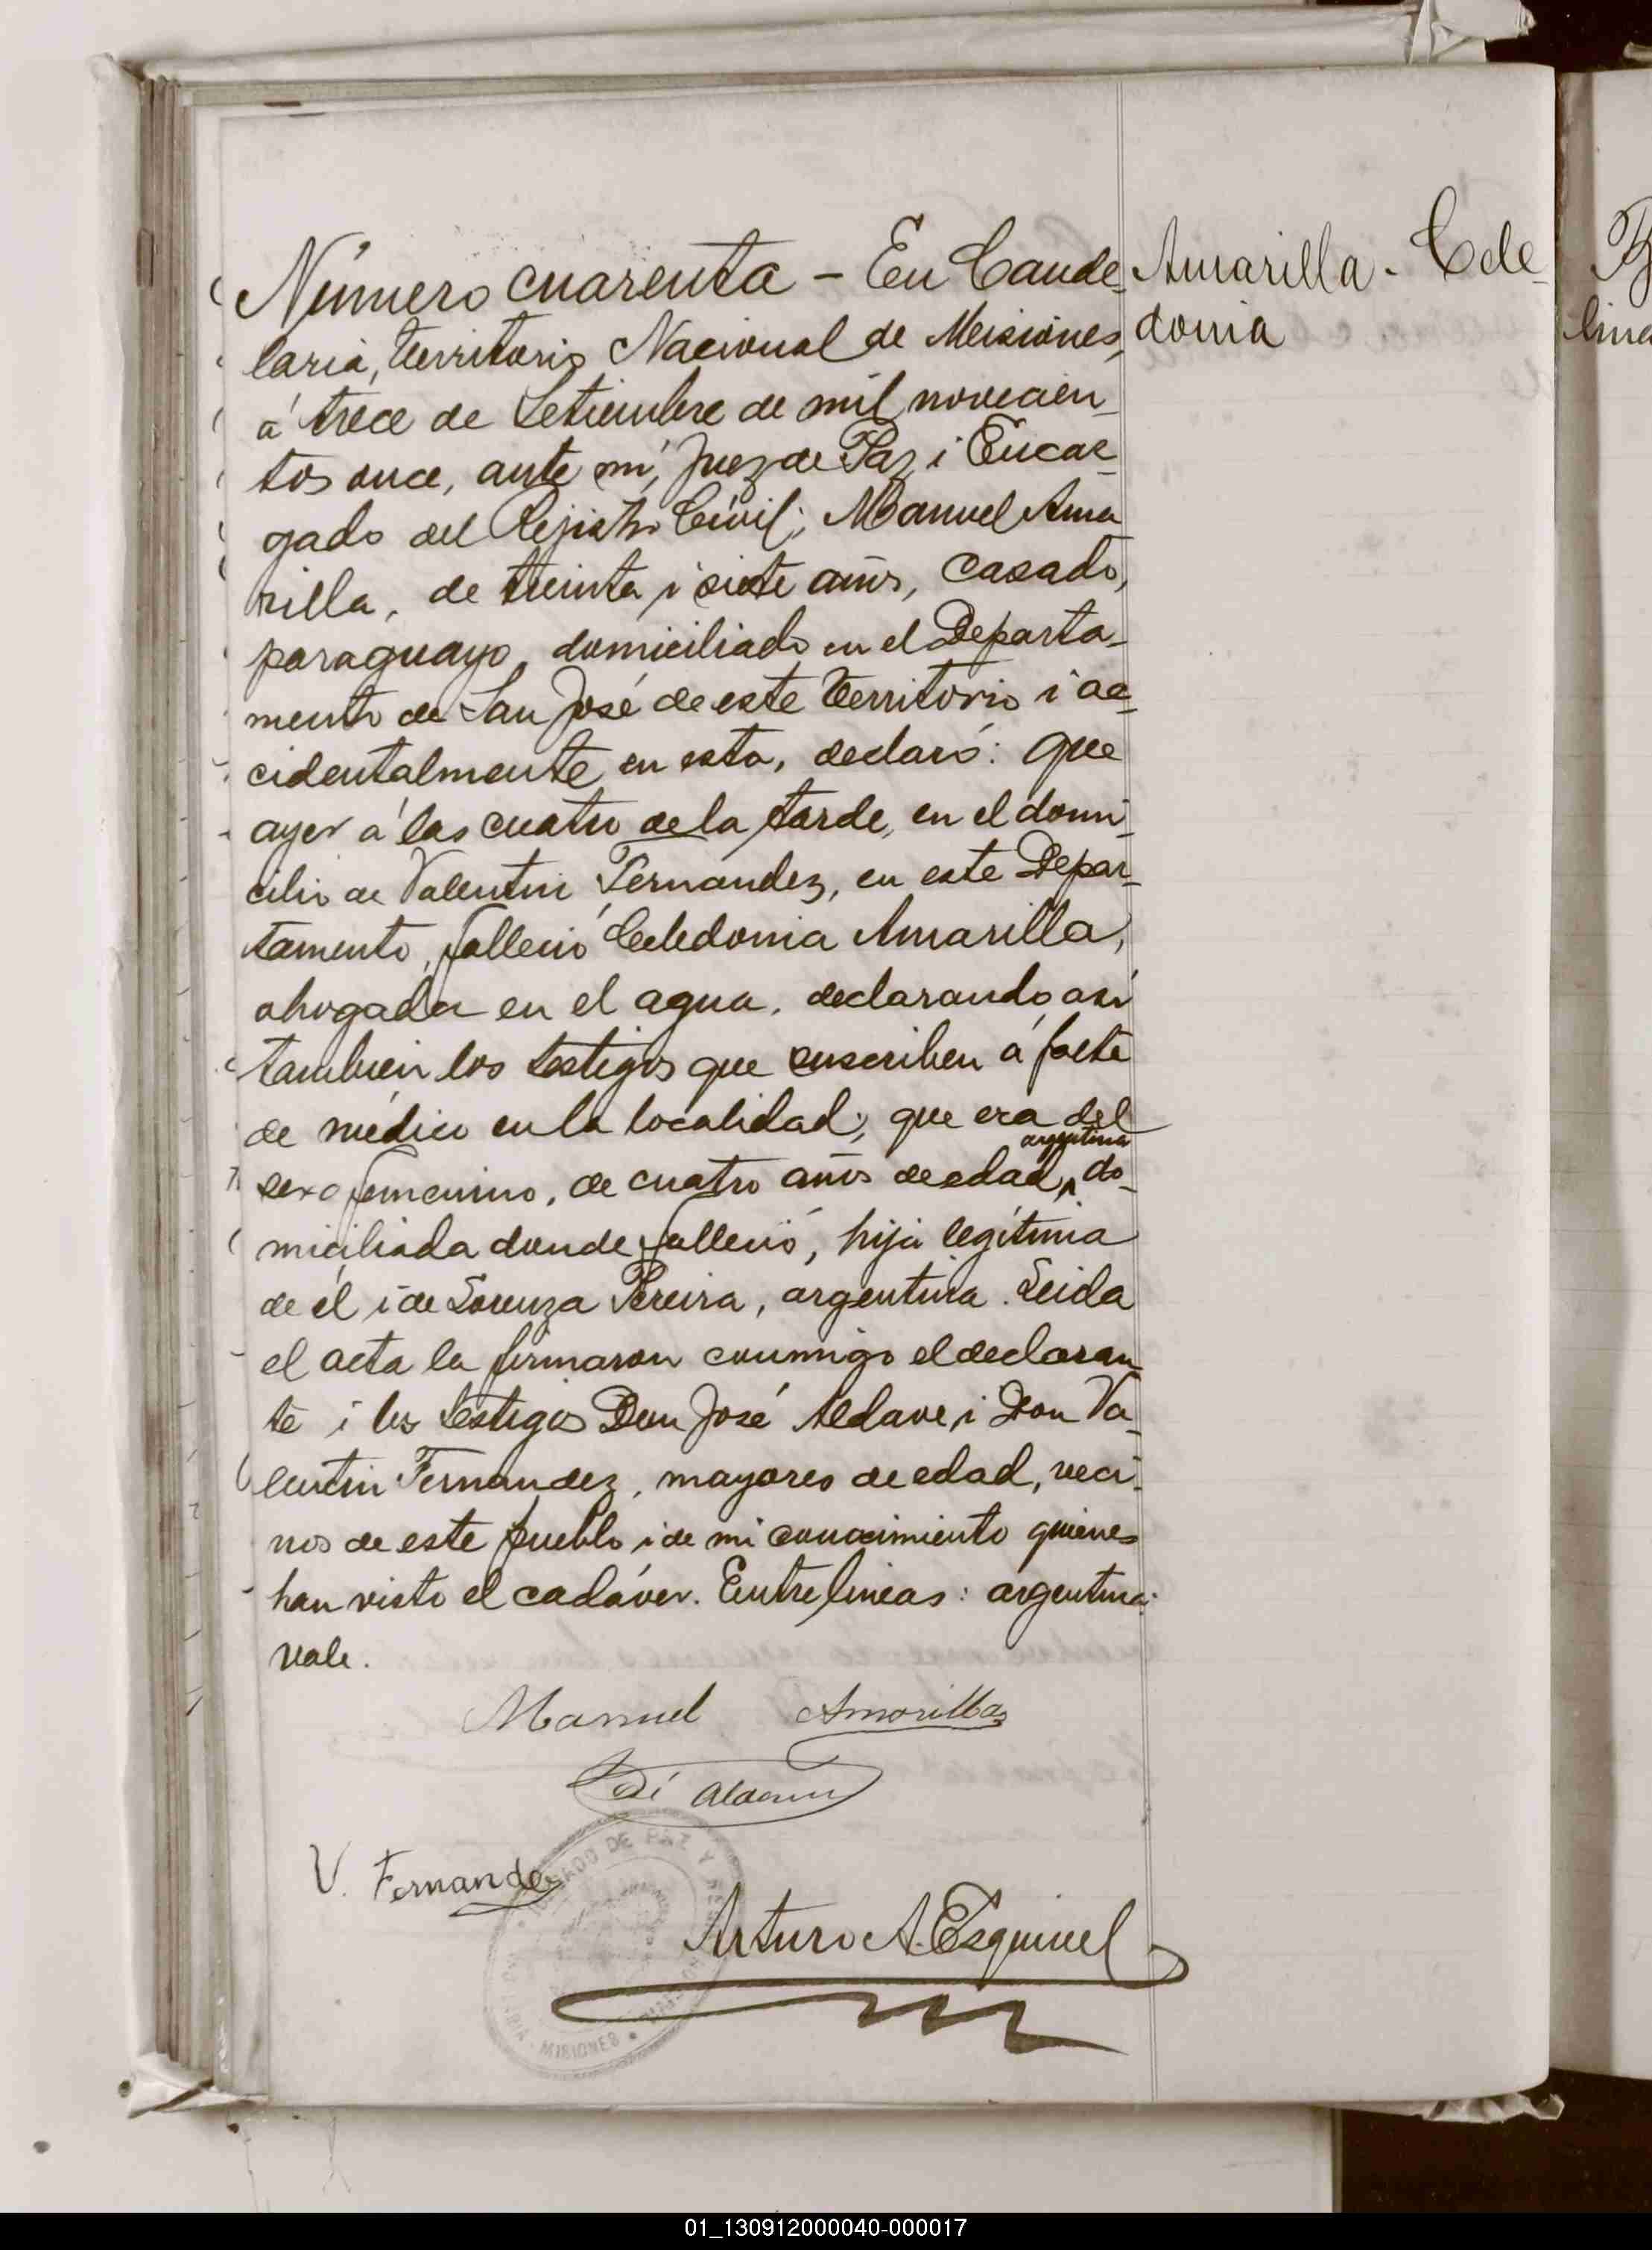 Número cuarenta - En Cande-
laria, Territorio Nacional de Misiones,
á trece de Setiembre de mil novecien-
tos once, ante mí, Juez de Paz i Encar-
gado del Rejistro Civil; Manuel Ama
rilla, de treinta i siete años, casado,
paraguayo, domiciliado en el Departa-
mento de San José de este Territorio i ac-
cidentalmente en esta, declaró: que
ayer á las cuatro de la tarde, en el domi-
cilio de Valentin Fernandez, en este Depar-
tamento, falleció Celedonia Amarilla,
ahogada en el agua, declarando así
tambien los testigos que suscriben á falta
de médico en la localidad; que era del
sexo femenino, de cuatro años de edad, argentina do-
miciliada donde falleció, hija legítima
de él i de Lorenza Pereira, argentina. Leida
el acta la firmaron conmigo el declaran-
te i los testigos Don José Aldave i Don Va-
lentin Fernandez, mayores de edad, veci-
nos de este pueblo i de mi conocimiento quienes
han visto el cadáver. Entre lineas: argentina:
vale.
Amarilla - Cele-
donia
Manuel Amarilla
V. Fernandez
Arturo A. Esquivel
JUZGADO DE PAZ Y
MISIONES
01_130912000040-000017